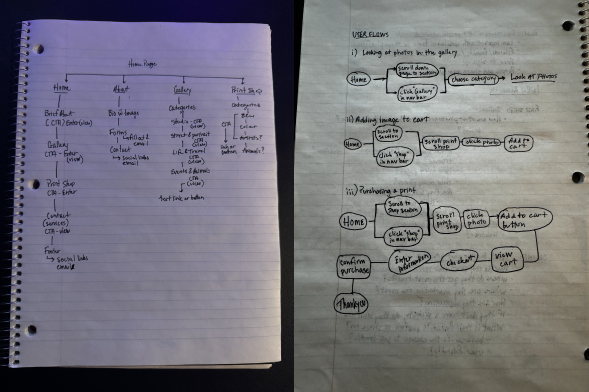 Home Page
Home
About
Gallery
Print Shop
Brief About
[CTA] Enter (view)
Gallery
CTA - Enter
(view)
Print Shop
CTA - Enter
Contact
(services)
CTA - view
Footer
↳ social links
email
Bio w/ Image
Form
Contact
→ social links
email
Categories
CTA
(view)
Street & portrait
CTA
(view)
CTA
(view)
Events &
CTA
(view)
Text link or button
Categories
CTA
B&W
Color
button
USER FLOWS
i) Looking at photos in the gallery
Home
Scroll down
page to section
click "Gallery"
in nav bar
choose category
Look AT PHOTOS
ii) Adding Image to cart
Home
Scroll to
Section
Click "Shop"
in nav bar
Scroll print
Shop
click photo
Add to
cart
iii) Purchasing a print
Home
Scroll to
Shop section
click "Shop"
in nav bar
Scroll
print
shop
click
photo
Add to cart
button
confirm
purchase
Enter
Information
Checkout
view
cart
Thank you